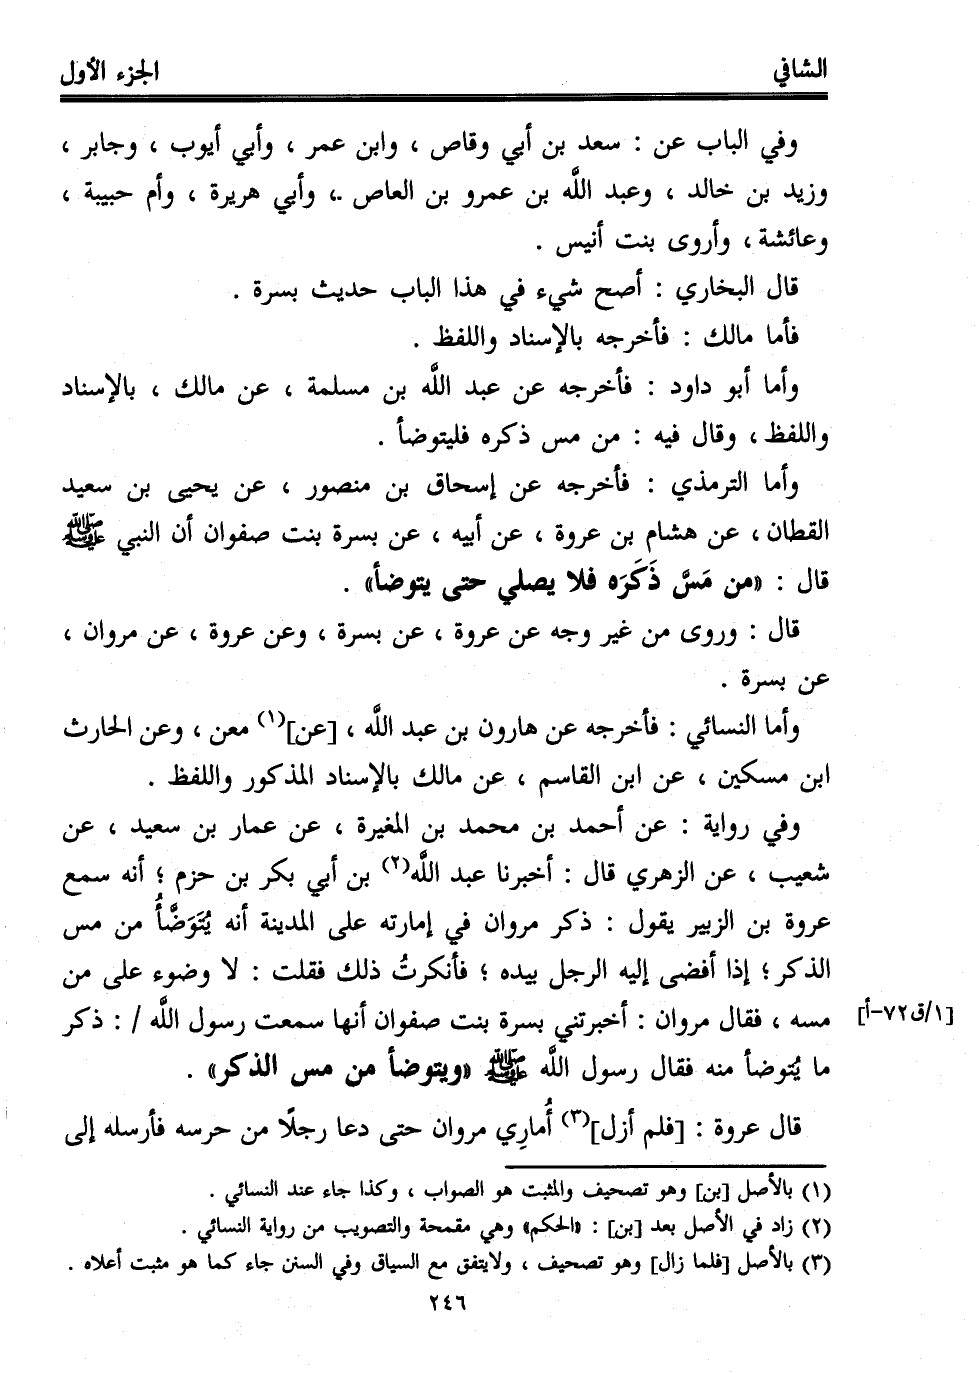 الشافي
الجزء الأول
وفي الباب عن : سعد بن أبي وقاص ، وابن عمر ، وأبي أيوب ، وجابر ،
وزيد بن خالد ، وعبد اللَّه بن عمرو بن العاص .، وأبي هريرة ، وأم حبيبة ،
وعائشة ، وأروى بنت أنيس .
قال البخاري : أصح شيء في هذا الباب حديث بسرة .
فأما مالك : فأخرجه بالإسناد واللفظ .
وأما أبو داود : فأخرجه عن عبد اللَّه بن مسلمة ، عن مالك ، بالإسناد
واللفظ ، وقال فيه : من مس ذكره فليتوضأ .
وأما الترمذي : فأخرجه عن إسحاق بن منصور ، عن يحيى بن سعيد
القطان ، عن هشام بن عروة ، عن أبيه ، عن بسرة بنت صفوان أن النبي ﷺ
قال : «من مَسَّ ذَكَرَه فلا يصلي حتى يتوضأ» .
قال : وروى من غير وجه عن عروة ، عن بسرة ، وعن عروة ، عن مروان ،
عن بسرة .
وأما النسائي : فأخرجه عن هارون بن عبد اللَّه ، [عن](١) معن ، وعن الحارث
ابن مسكين ، عن ابن القاسم ، عن مالك بالإسناد المذكور واللفظ .
وفي رواية : عن أحمد بن محمد بن المغيرة ، عن عمار بن سعيد ، عن
شعيب ، عن الزهري قال : أخبرنا عبد اللَّه(٢) بن أبي بكر بن حزم ؛ أنه سمع
عروة بن الزبير يقول : ذكر مروان في إمارته على المدينة أنه يُتَوَضَّأُ من مس
الذكر ؛ إذا أفضى إليه الرجل بيده ؛ فأنكرتُ ذلك فقلت : لا وضوء على من
مسه ، فقال مروان : أخبرتني بسرة بنت صفوان أنها سمعت رسول اللَّه / : ذكر
[١/ق٧٢-أ]
ما يُتوضأ منه فقال رسول اللَّه ﷺ «ويتوضأ من مس الذكر» .
قال عروة : [فلم أزل](٣) أُمارِي مروان حتى دعا رجلًا من حرسه فأرسله إلى
(١) بالأصل [بن] وهو تصحيف والمثبت هو الصواب ، وكذا جاء عند النسائي .
(٢) زاد في الأصل بعد [بن] : «الحكم» وهي مقمحة والتصويب من رواية النسائي .
(٣) بالأصل [فلما زال] وهو تصحيف ، ولايتفق مع السياق وفي السنن جاء كما هو مثبت أعلاه .
٢٤٦